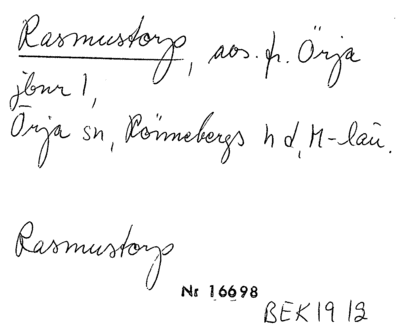 Rasmustorp, avs. fr. Örja
jbnr 1,
Örja sn, Rönnebergs hd, M-län.
Rasmustorp
Nr 16698
BEK 1912